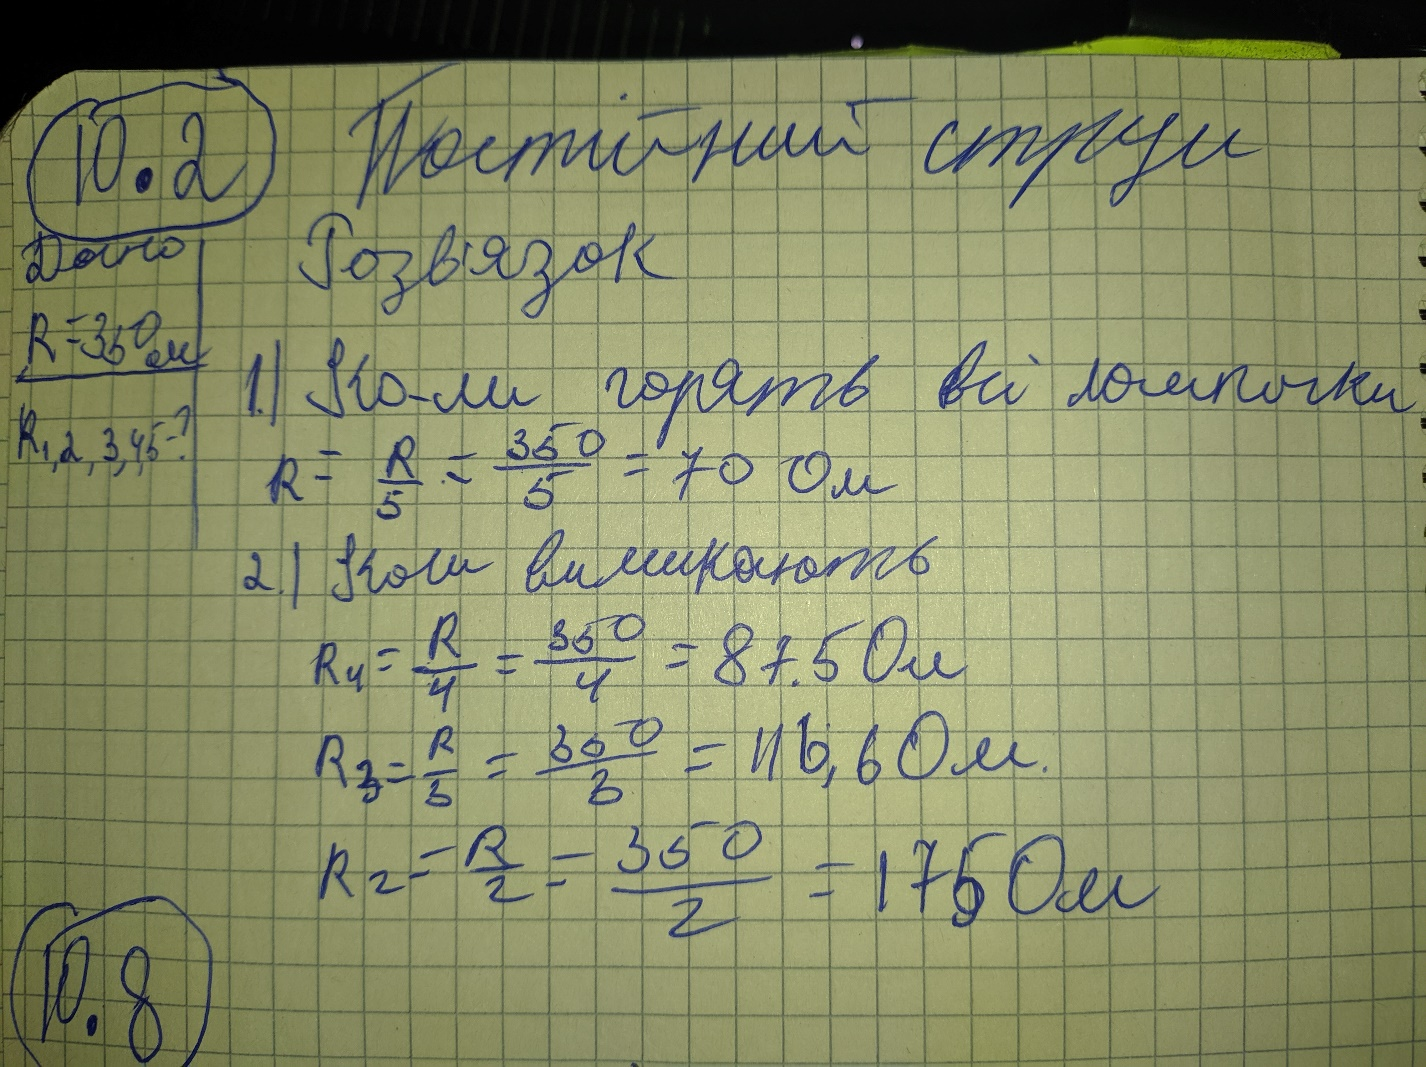 10.2 Постійний струм
Дано
Розв'язок
R=350 Ом
R1,2,3,4,5-?
1.) Коли горять всі лампочки
R = R/5 = 350/5 = 70 Ом
2.) Коли вимикають
R4 = R/4 = 350/4 = 87.5 Ом
R3 = R/3 = 350/3 = 116,6 Ом.
R2 = R/2 = 350/2 = 175 Ом
10.8